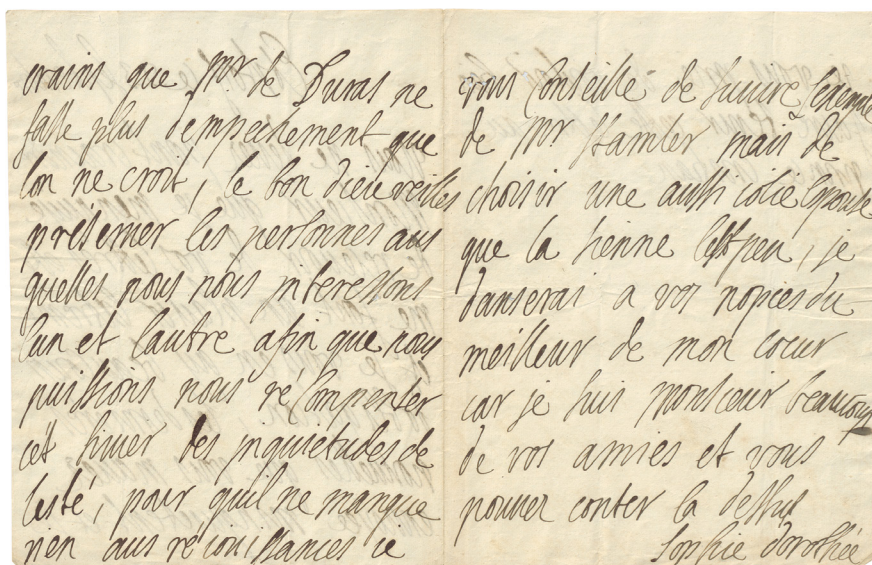 crains que Mr de Duras ne
fasse plus dempechement que
lon ne croit, le bon dieu veilles
preserver les personnes aus
quelles nous nous interessons
lun et lautre afin que nous
puissions nous récompenser
cét hiver des inquietudes de
lesté, pour quil ne manque
rien aus rejouissances je
vous conseille de suivre lexemple
de Mr Stamler mais de
choisir une aussi jolie epouse
que la sienne lest peu, je
danserai a vos nopces du
meilleur de mon coeur
car je suis monsieur beaucoup
de vos amies et vous
pouvez conter la dessus
Sophie dorothée